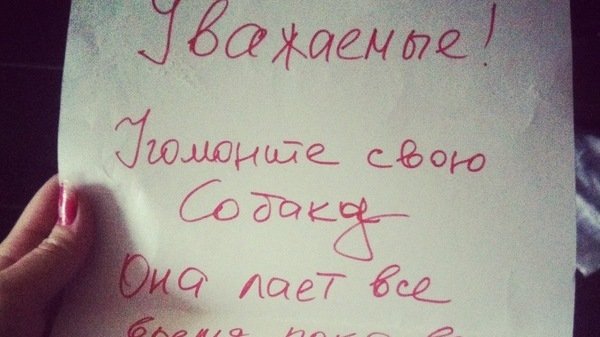 Уважаемые!
Угомоните свою
Собаку
Она лает все
время пока в